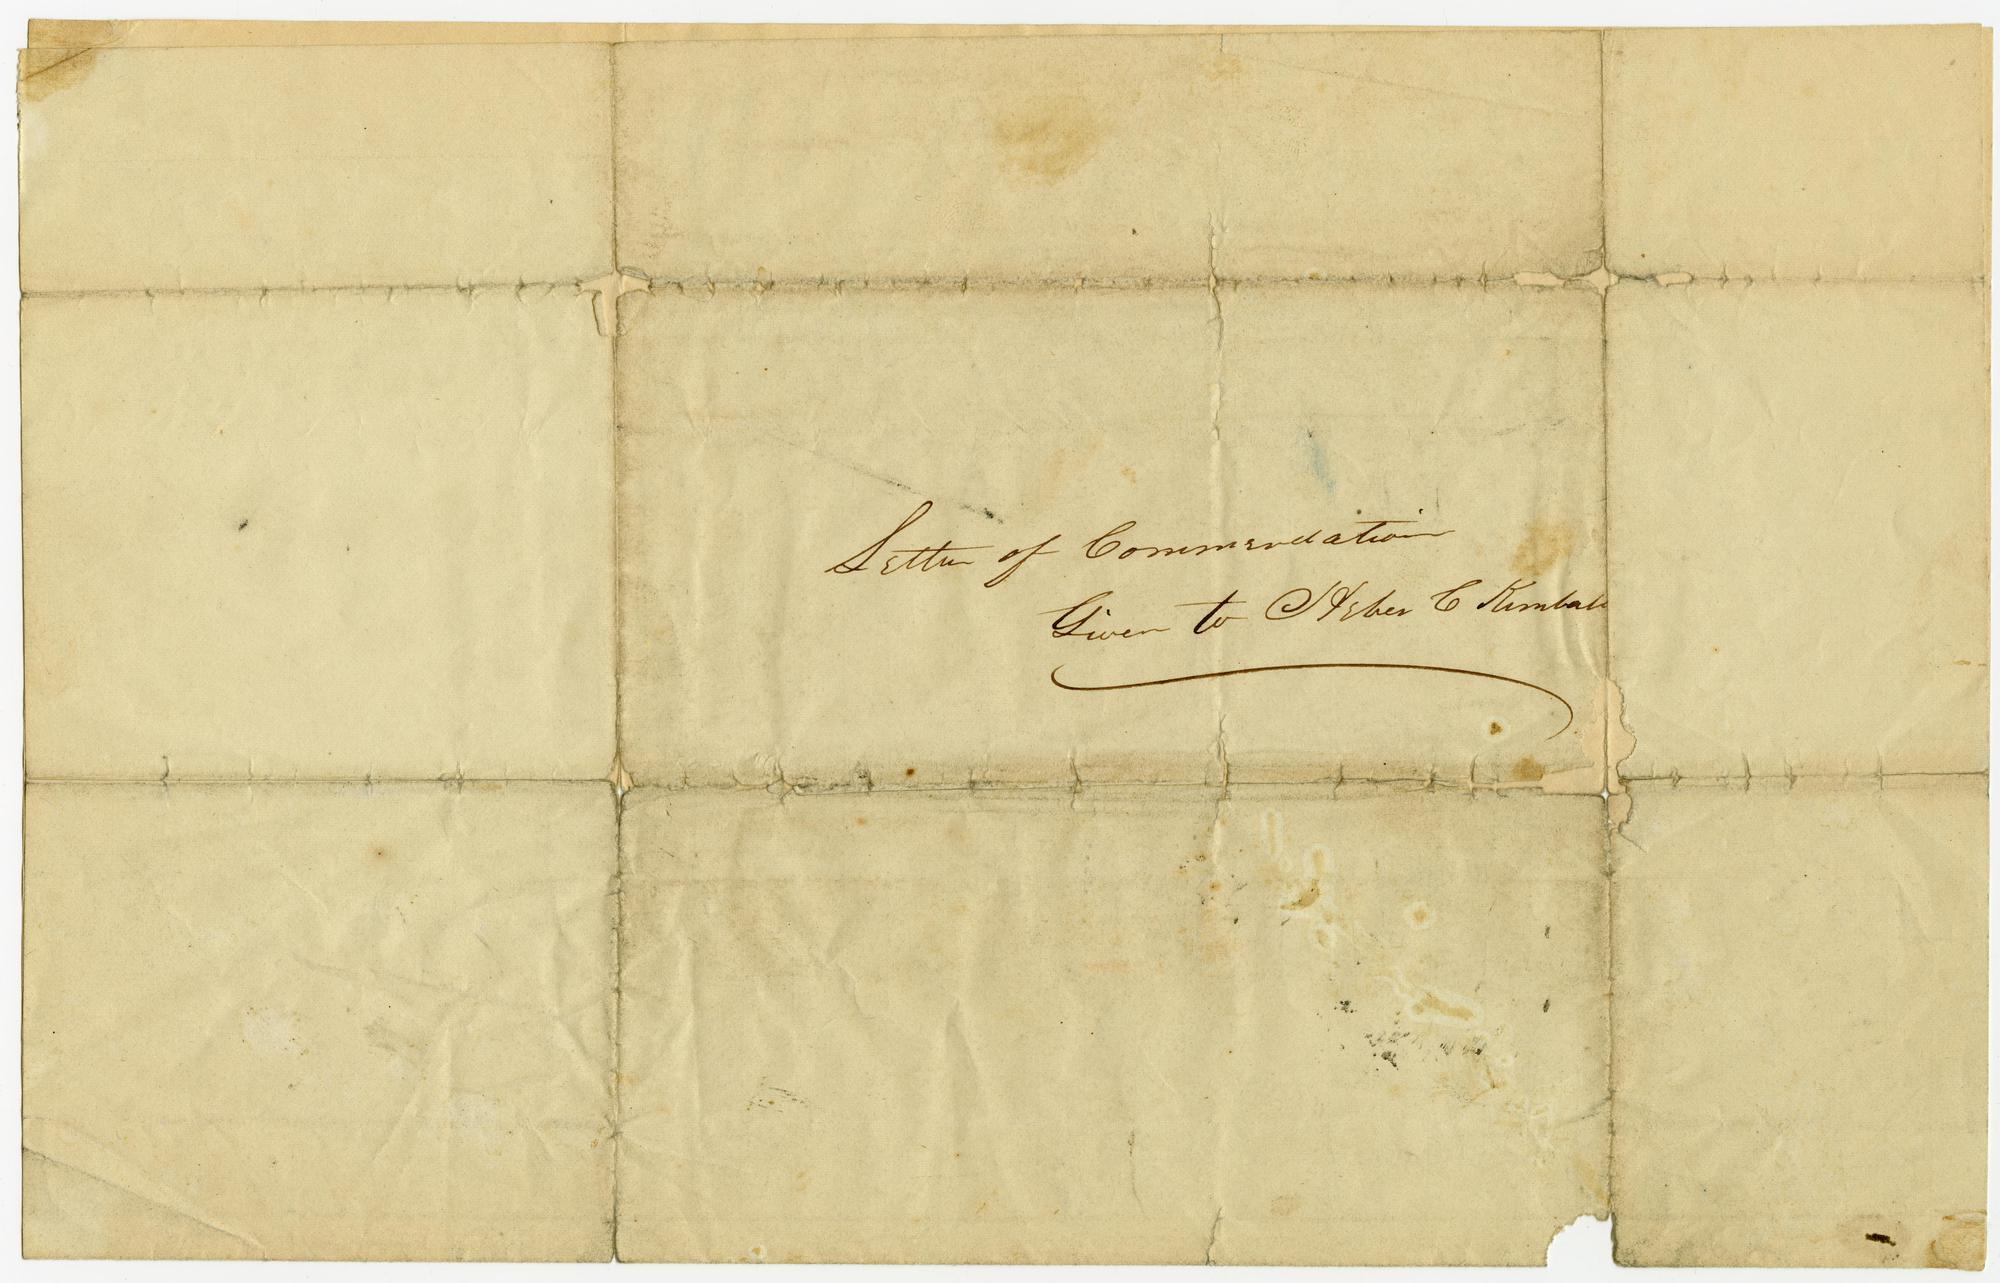 Letter of Commendation
Given to Heber C Kimball